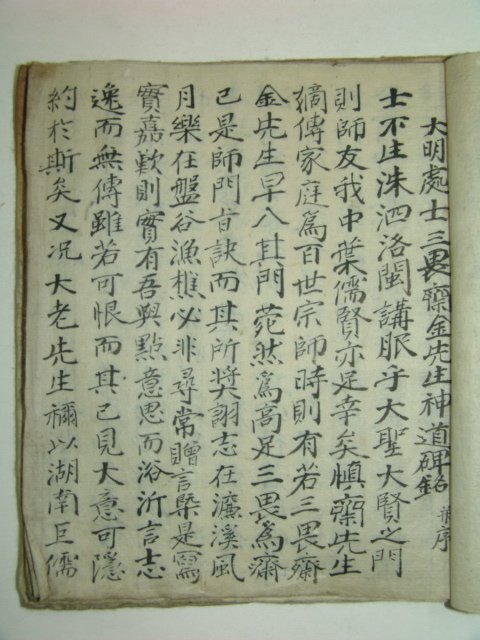 大明處士三畏齋金先生神道碑銘 並序
士不生洙泗洛閩講脈乎大聖大賢之門
則師友我中葉儒賢亦足幸矣愼齋先生
嫡傳家庭爲百世宗師時則有若三畏齋
金先生早入其門菀然爲高足三畏爲齋
已是師門旨訣而其所奬詡志在濂溪風
月樂在盤谷漁樵必非尋常贈言槩是寫
實嘉歎則實有吾與點意思而浴沂言志
逸而無傳雖若可恨而其已見大意可隱
約於斯矣又况大老先生禰以湖南巨儒